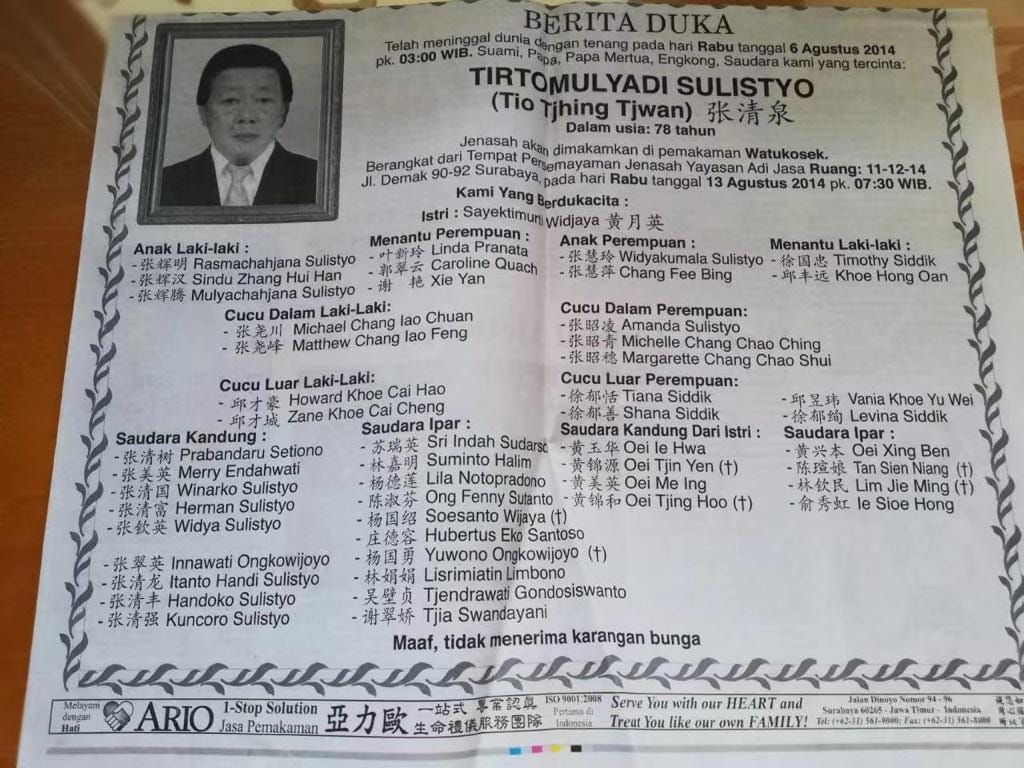 BERITA DUKA
Telah meninggal dunia dengan tenang pada hari Rabu tanggal 6 Agustus 2014
pk. 03:00 WIB. Suami, Papa, Papa Mertua, Engkong, Saudara kami yang tercinta:
TIRTOMULYADI SULISTYO
(Tio Tjhing Tjwan) 张清泉
Dalam usia: 78 tahun
Jenasah akan dimakamkan di pemakaman Watukosek.
Berangkat dari Tempat Persemayaman Jenasah Yayasan Adi Jasa Ruang: 11-12-14
Jl. Demak 90-92 Surabaya, pada hari Rabu tanggal 13 Agustus 2014 pk. 07:30 WIB.
Kami Yang Berdukacita :
Istri : Sayektimurni Widjaya 黄月英
Anak Laki-laki :
- 张辉明 Rasmachahjana Sulistyo
- 张辉汉 Sindu Zhang Hui Han
- 张辉腾 Mulyachahjana Sulistyo
Menantu Perempuan :
- 叶新玲 Linda Pranata
- 郭翠云 Caroline Quach
- 谢 艳 Xie Yan
Anak Perempuan :
- 张慧玲 Widyakumala Sulistyo
- 张慧萍 Chang Fee Bing
Menantu Laki-laki :
- 徐国忠 Timothy Siddik
- 邱丰远 Khoe Hong Oan
Cucu Dalam Laki-Laki:
- 张尧川 Michael Chang Iao Chuan
- 张尧峰 Matthew Chang Iao Feng
Cucu Dalam Perempuan:
- 张昭凌 Amanda Sulistyo
- 张昭青 Michelle Chang Chao Ching
- 张昭穗 Margarette Chang Chao Shui
Cucu Luar Laki-Laki:
- 邱才豪 Howard Khoe Cai Hao
- 邱才城 Zane Khoe Cai Cheng
Cucu Luar Perempuan:
- 徐郁恬 Tiana Siddik
- 徐郁善 Shana Siddik
- 邱昱玮 Vania Khoe Yu Wei
- 徐郁绚 Levina Siddik
Saudara Kandung :
- 张清树 Prabandaru Setiono
- 张美英 Merry Endahwati
- 张清国 Winarko Sulistyo
- 张清富 Herman Sulistyo
- 张钦英 Widya Sulistyo
- 张翠英 Innawati Ongkowijoyo
- 张清龙 Itanto Handi Sulistyo
- 张清丰 Handoko Sulistyo
- 张清强 Kuncoro Sulistyo
Saudara Ipar :
- 苏瑞英 Sri Indah Sudarso
- 林嘉明 Suminto Halim
- 杨德莲 Lila Notopradono
- 陈淑芬 Ong Fenny Sutanto
- 杨国绍 Soesanto Wijaya (†)
- 庄德容 Hubertus Eko Santoso
- 杨国勇 Yuwono Ongkowijoyo (†)
- 林娟娟 Lisrimiatin Limbono
- 吴壁贞 Tjendrawati Gondosiswanto
- 谢翠娇 Tjia Swandayani
Saudara Kandung Dari Istri :
- 黄玉华 Oei Ie Hwa
- 黄锦源 Oei Tjin Yen (†)
- 黄美英 Oei Me Ing
- 黄锦和 Oei Tjing Hoo (†)
Saudara Ipar :
- 黄兴本 Oei Xing Ben
- 陈瑄娘 Tan Sien Niang (†)
- 林钦民 Lim Jie Ming (†)
- 俞秀虹 Ie Sioe Hong
Maaf, tidak menerima karangan bunga
Melayani
dengan
Hati
ARIO
1-Stop Solution
Jasa Pemakaman
亞力歐
一站式 專業認真
生命禮儀服務團隊
ISO 9001:2008
Pertama di
Indonesia
Serve You with our HEART and
Treat You like our own FAMILY!
Jalan Dinoyo Nomor 94 - 96
Surabaya 60265 - Jawa Timur - Indonesia
Tel: (+62-31) 561-9000; Fax: (+62-31) 561-8000